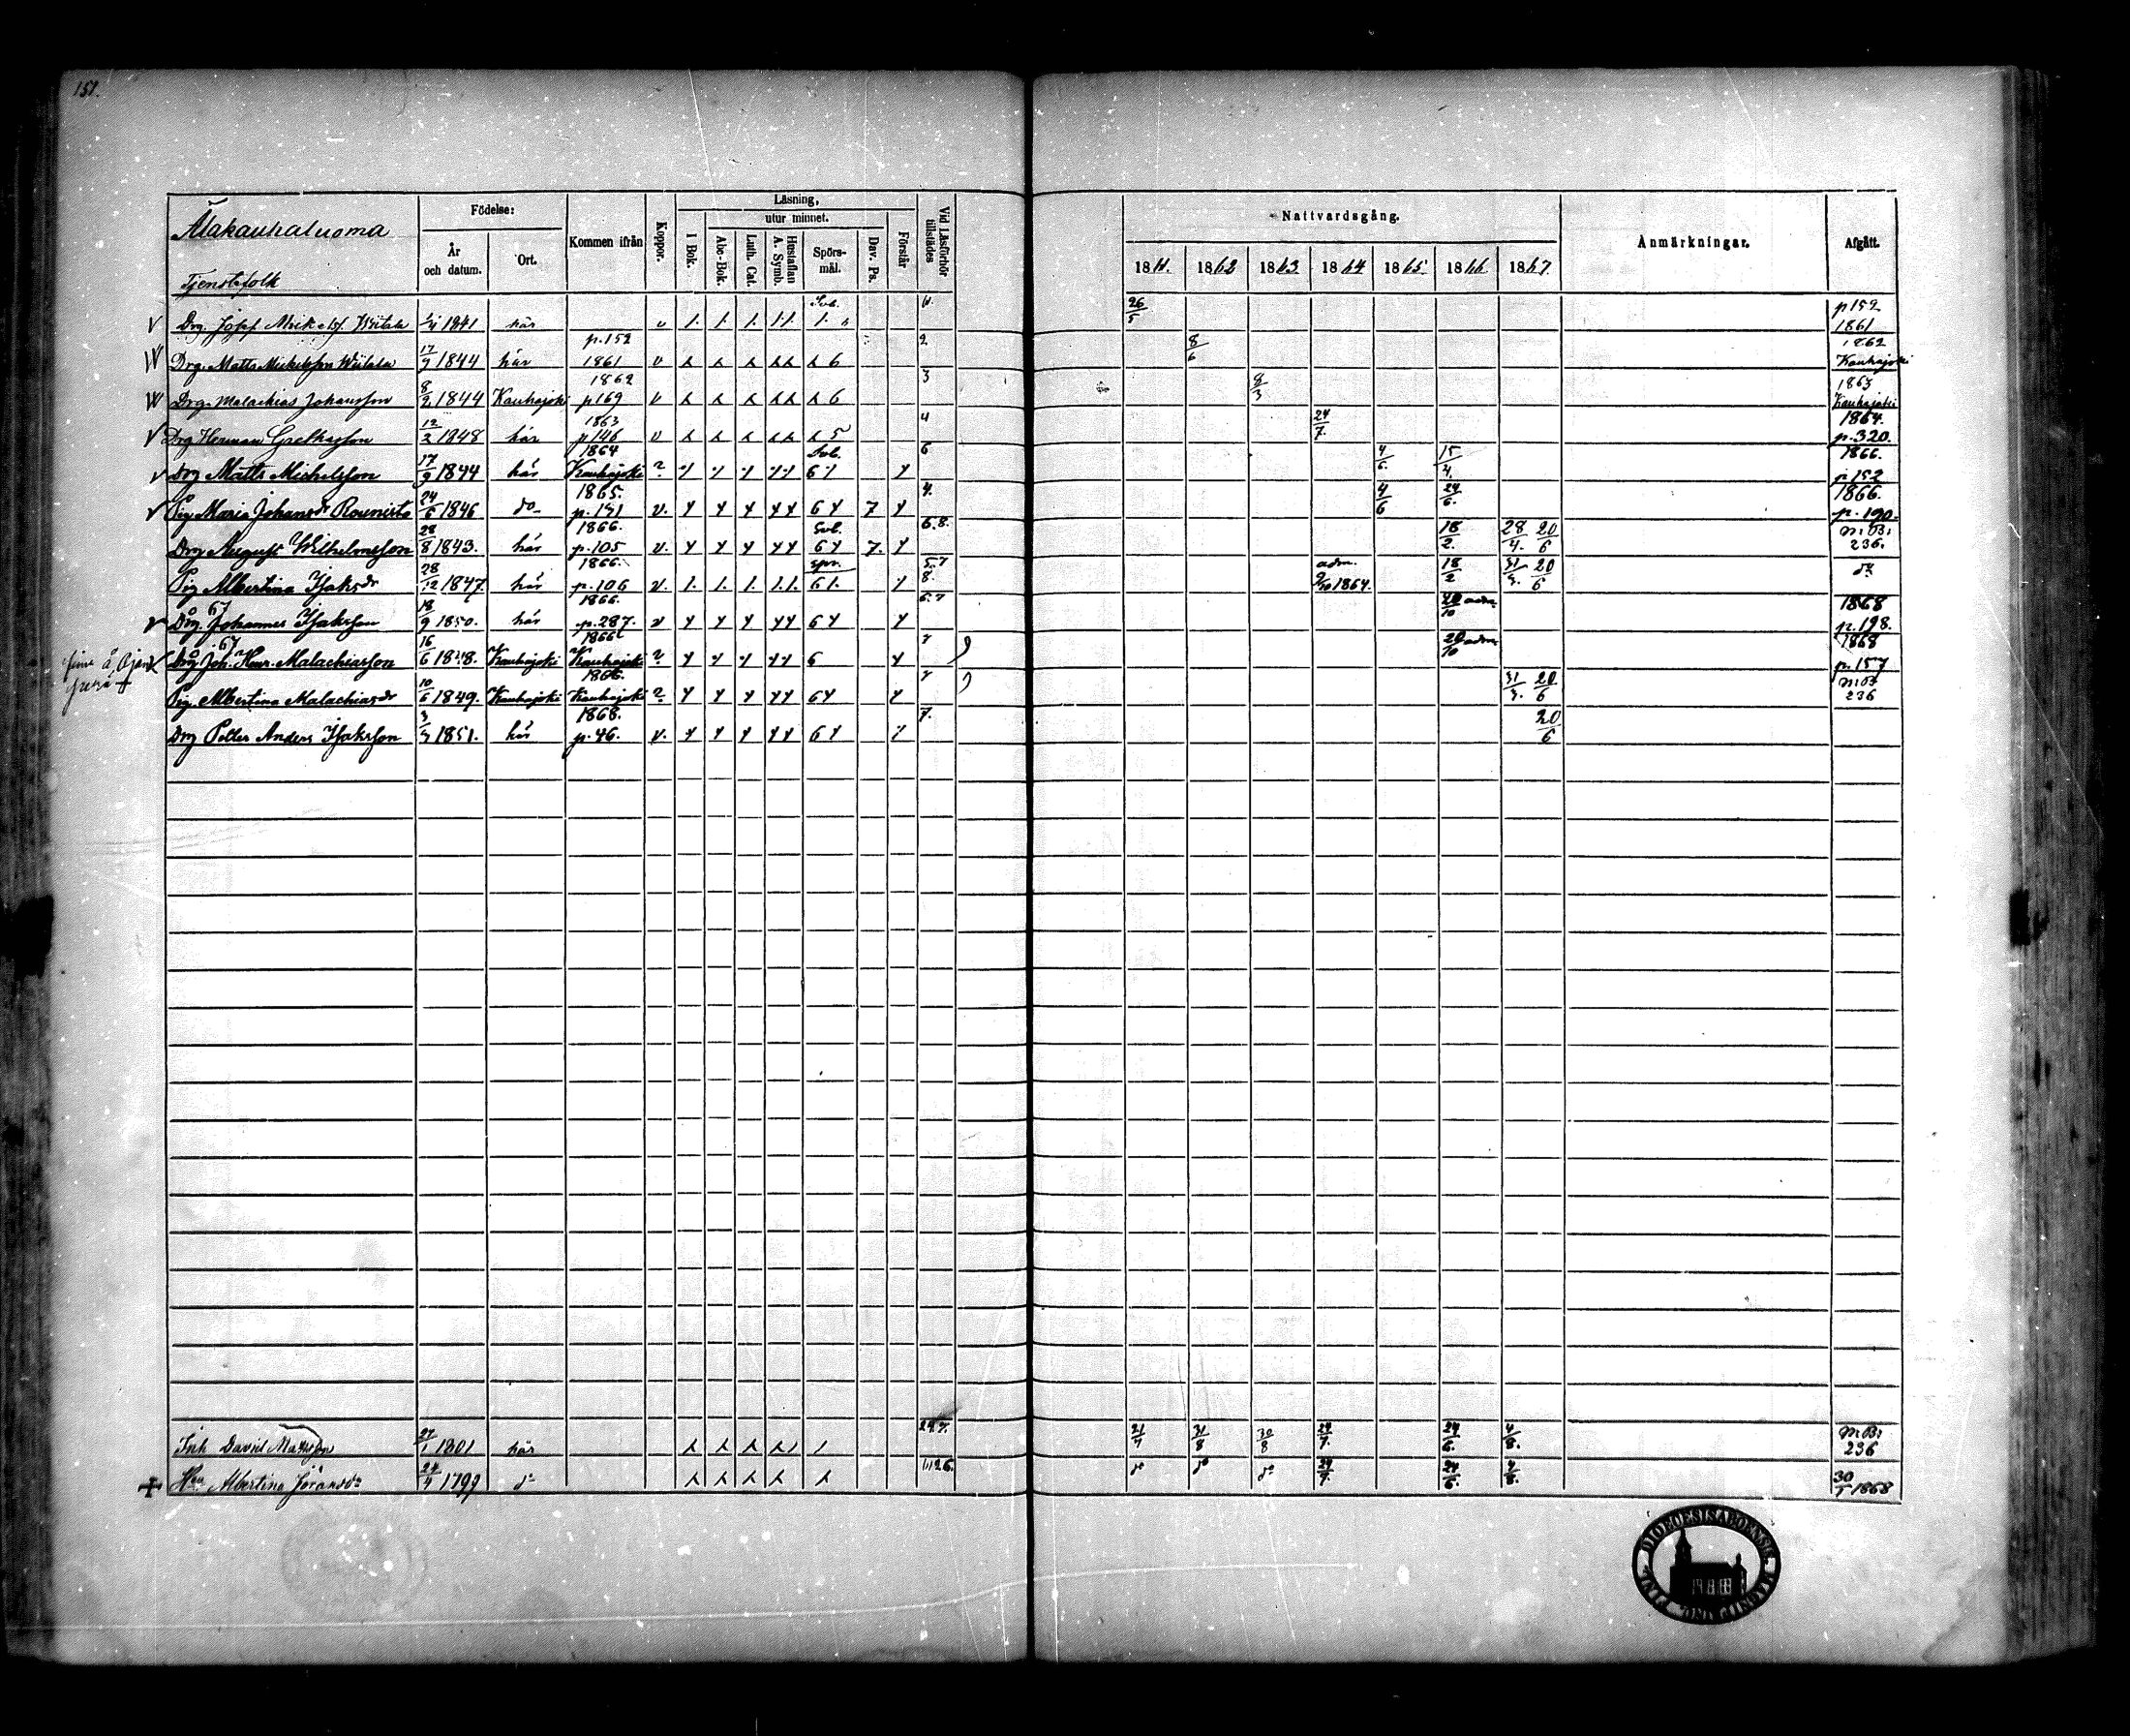 151.
Födelse:
Läsning,
utur minnet.
Nattvardsgång.
Alakauhaluoma
År och datum.
Ort.
Kommen ifrån
Koppor.
I Bok.
Abc-Bok.
Luth. Cat.
Hustaflan A. Symb.
Spörsmål.
Dav. Ps.
Förstår
Vid Läsförhör tillstädes
1861. 1862 1863 1864 1865 1866 1867.
Anmärkningar.
Afgått.
Tjenstefolk
Drg. Josef Mickelsf. Wiitala 1/4 1841 här v 26/5 p 152 1861
Drg. Matts Mickelsson Wiitala 17/9 1844 här p. 152 1861 v 6 2 8/6 1862 Kauhajoki
Drg. Malachias Johansson 8/2 1844 Kauhajoki 1862 p 169 v 6 3 8/3 1863 Kauhajoki
Drg Herman Grelksson 12/2 1848 här 1863 p 146 v 5 4 24/7. 1864. p. 320.
Drg Matts Michelsson 17/9 1844 här 1864 Kauhajoki ? 6 6 4/6. 15/4. 1866. p 152
Pig Maria Johansdr Rounisto 24/6 1846 do 1865. p. 151 v. 6 7 4. 4/6 24/6. 1866. p. 190.
Drg August Wilhelmsson 28/8 1843. här 1866. p. 105 v. 6 7. 6.8. 18/2. 28/4. 20/6 m. B. 236.
Pig Albertina Isaksdr 28/12 1847. här 1866. p. 106 v. 6 5.7 8. adm. 9/10 1864. 18/2 31/3. 20/6 do
67
Drg. Johannes Isaksson 18/9 1850. här 1866. p. 287. v 6 6.7 20/10 adm. 1868 p. 198.
67
Drg Joh. Henr. Malachiasson 16/6 1848. Kauhajoki 1866 Kauhajoki ? 6 7 20/10 adm. 1868 p. 157
Pig. Albertina Malachiasdr 10/6 1849. Kauhajoki 1866. Kauhajoki ? 6 7 31/3. 20/6 m. B. 236
Drg Petter Anders Isaksson 3/3 1851. här 1868. p. 46. v. 6 7. 20/6
Inh David Mattsson 27/1 1801 här 21/7 31/8 30/8 24/7. 24/6. 4/8. m. B. 236
Hu Albertina Göransdr 24/4 1799 do do do do 24/7. 24/6. 4/8. 30/1 1868
DIOECESIS ABOENSIS
MAGNI DUC. FINL.